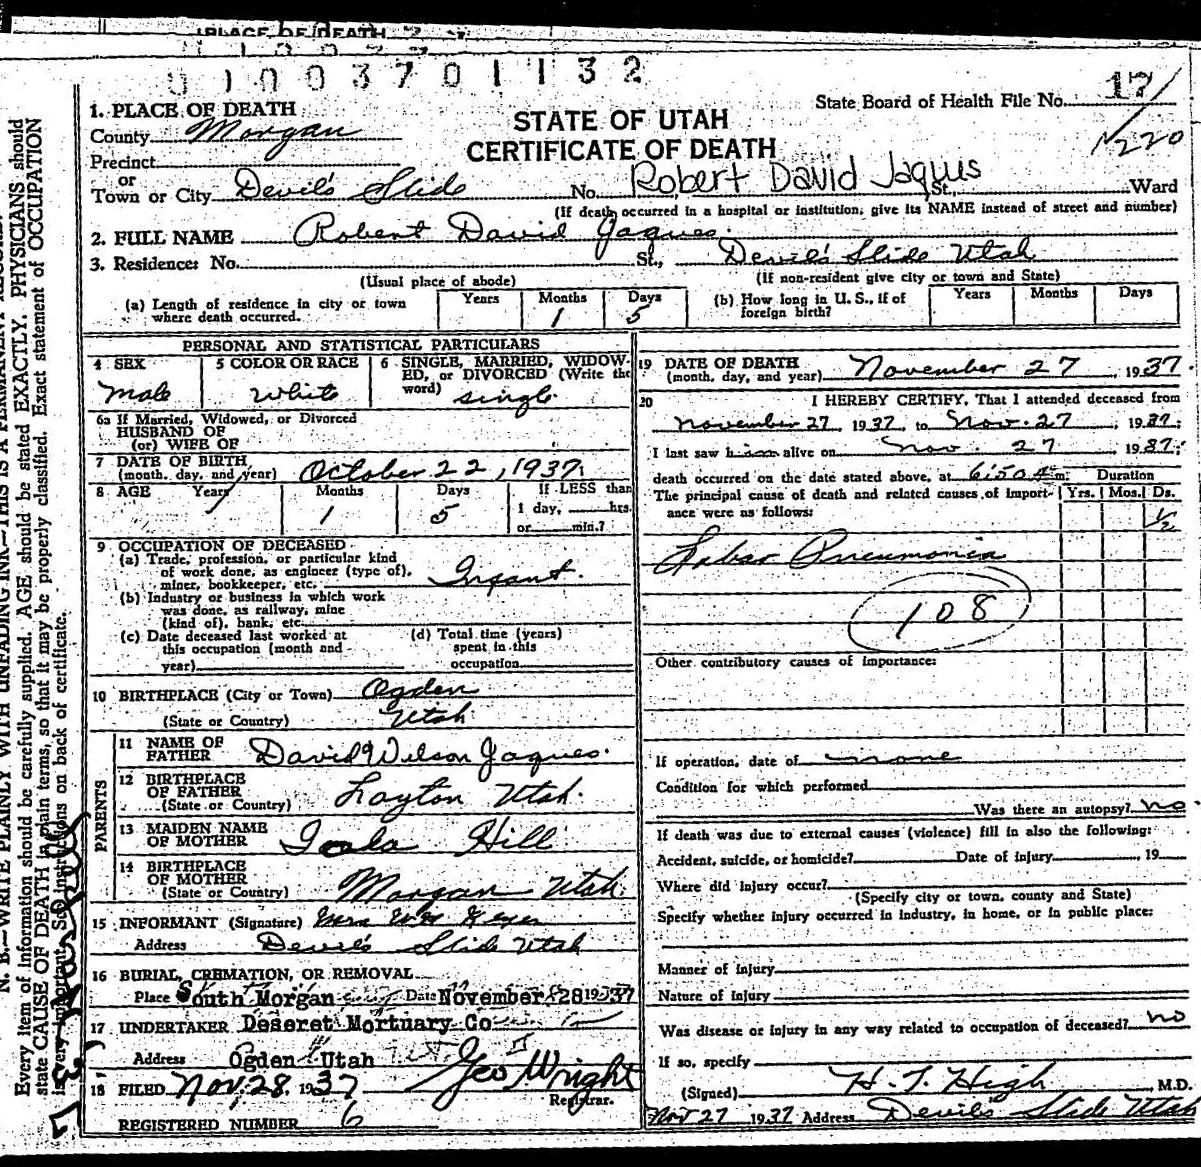 PLACE OF DEATH
0100370 1132
1. PLACE OF DEATH
State Board of Health File No. 17
220
STATE OF UTAH
CERTIFICATE OF DEATH
County Morgan
Precinct
or
Town or City Devil's Slide No. Robert David Jaques St., Ward
(If death occurred in a hospital or institution, give its NAME instead of street and number)
2. FULL NAME Robert David Jaques.
3. Residence: No. St., Devil's Slide Utah
(Usual place of abode) (If non-resident give city or town and State)
(a) Length of residence in city or town where death occurred. Years Months 1 Days 5
(b) How long in U. S., if of foreign birth? Years Months Days
PERSONAL AND STATISTICAL PARTICULARS
4 SEX Male
5 COLOR OR RACE White
6 SINGLE, MARRIED, WIDOWED, or DIVORCED (Write the word) Single
6a If Married, Widowed, or Divorced
HUSBAND OF
(or) WIFE OF
7 DATE OF BIRTH
(month, day, and year) October 22, 1937.
8 AGE Years Months 1 Days 5 If LESS than
1 day, hrs.
or min.?
9 OCCUPATION OF DECEASED
(a) Trade, profession, or particular kind
of work done, as engineer (type of),
miner, bookkeeper, etc. Infant.
(b) Industry or business in which work
was done, as railway, mine
(kind of), bank, etc.
(c) Date deceased last worked at
this occupation (month and
year)
(d) Total time (years)
spent in this
occupation
10 BIRTHPLACE (City or Town) Ogden
(State or Country) Utah
PARENTS
11 NAME OF
FATHER David Wilson Jaques.
12 BIRTHPLACE
OF FATHER
(State or Country) Layton Utah.
13 MAIDEN NAME
OF MOTHER Hill
14 BIRTHPLACE
OF MOTHER
(State or Country) Morgan Utah.
15 INFORMANT (Signature) Mrs
Address Devil's Slide Utah
16 BURIAL, CREMATION, OR REMOVAL
Place South Morgan Date November 28 1937
17 UNDERTAKER Deseret Mortuary Co
Address Ogden Utah
18 FILED Nov, 28, 1937 Geo Wright
Registrar.
REGISTERED NUMBER 6
19 DATE OF DEATH
(month, day, and year) November 27, 1937.
20 I HEREBY CERTIFY, That I attended deceased from
November 27, 1937, to Nov. 27, 1937;
I last saw him alive on Nov. 27, 1937;
death occurred on the date stated above, at 6:50 A m. Duration
The principal cause of death and related causes of importance were as follows: Yrs. Mos. Ds.
1/2
Lobar Pneumonia
108
Other contributory causes of importance:
If operation, date of none
Condition for which performed
Was there an autopsy? no
If death was due to external causes (violence) fill in also the following:
Accident, suicide, or homicide? Date of injury , 19
Where did injury occur?
(Specify city or town, county and State)
Specify whether injury occurred in industry, in home, or in public place:
Manner of injury
Nature of injury
Was disease or injury in any way related to occupation of deceased? no
If so, specify
(Signed) H. T. High, M.D.
Nov 27 1937 Address Devil's Slide Utah
N. B.—WRITE PLAINLY WITH UNFADING INK—THIS IS A PERMANENT RECORD.
Every item of information should be carefully supplied. AGE should be stated EXACTLY. PHYSICIANS should
state CAUSE OF DEATH in plain terms, so that it may be properly classified. Exact statement of OCCUPATION
is very important. See instructions on back of certificate.